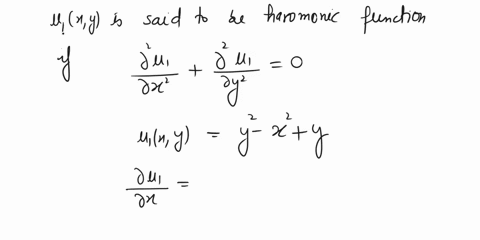 u₁(x,y) is said to be haromonic function
if ∂²u₁/∂x² + ∂²u₁/∂y² = 0
u₁(x,y) = y² - x² + y
∂u₁/∂x =